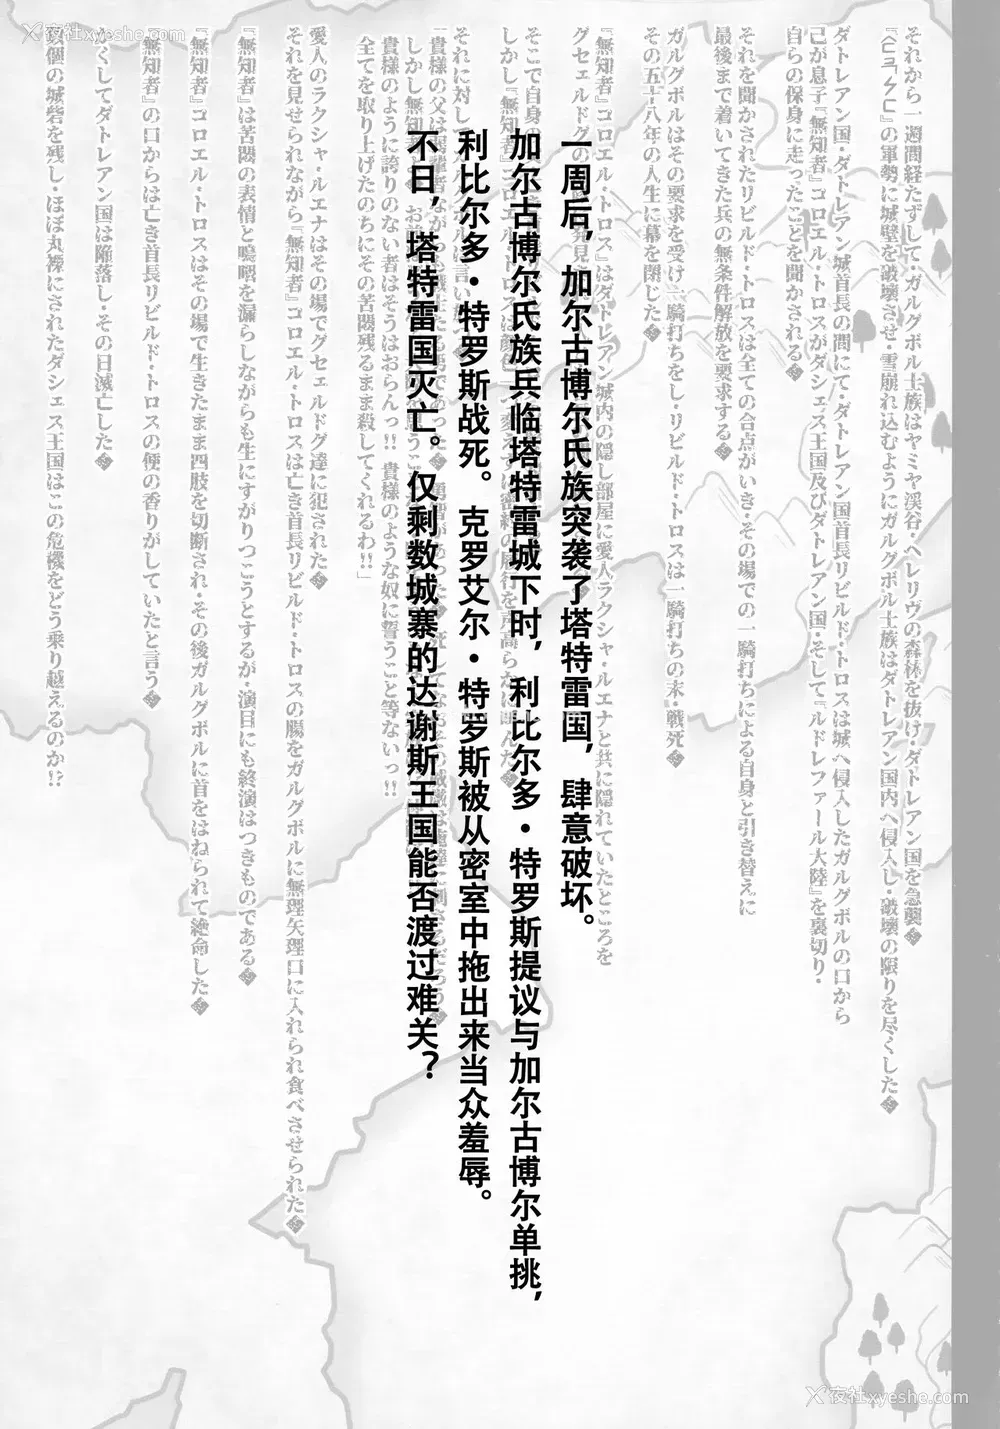 夜社xyeshe.com
それから一週間経たずして・ガルグボル士族はヤミヤ渓谷・ヘレリヴの森林を抜け・ダトレアン国を急襲
の軍勢に城壁を破壊させ・雪崩れ込むようにガルグボル士族はダトレアン国内へ侵入し・破壊の限りを尽くした
ダトレアン国・ダトレアン城首長の間にて・ダトレアン国首長リビルド・トロスは城へ侵入したガルグボルの口から
己が息子『無知者』コロエル・トロスがダシェス王国及びダトレアン国・そして『ルドレファール大陸』を裏切り・
自らの保身に走ったことを聞かされる
それを聞かされたリビルド・トロスは全ての合点がいき・その場での一騎打ちによる自身と引き替えに
最後まで着いてきた兵の無条件解放を要求する
ガルグボルはその要求を受け一騎打ちをし・リビルド・トロスは一騎打ちの末・戦死
その五十八年の人生に幕を閉じた
『無知者』コロエル・トロスはダトレアン城内の隠し部屋に愛人ラクシャ・ルエナと共に隠れていたところを
グセェルドグ
そこで自身の
しかし『無知者』コロエル・トロスは顔
それに対して
「貴様の父は
しかし無知
貴様のように誇りのない者はそうはおらんっ!! 貴様のような奴に誓うこと等ないっ!!
全てを取り上げたのちにその苦悶残るまま殺してくれるわ!!」
愛人のラクシャ・ルエナはその場でグセェルドグ達に犯された
それを見せられながら『無知者』コロエル・トロスは亡き首長リビルド・トロスの腸をガルグボルに無理矢理口に入れられ食べさせられた
『無知者』は苦悶の表情と嗚咽を漏らしながらも生にすがりつこうとするが・演目にも終演はつきものである
『無知者』コロエル・トロスはその場で生きたまま四肢を切断され・その後ガルグボルに首をはねられて絶命した
『無知者』の口からは亡き首長リビルド・トロスの便の香りがしていたと言う
かくしてダトレアン国は陥落し・その日滅亡した
幾個の城砦を残し・ほぼ丸裸にされたダシェス王国はこの危機をどう乗り越えるのか!?
一周后，加尔古博尔氏族突袭了塔特雷国，肆意破坏。
加尔古博尔氏族兵临塔特雷城下时，利比尔多・特罗斯提议与加尔古博尔单挑，
利比尔多・特罗斯战死。克罗艾尔・特罗斯被从密室中拖出来当众羞辱。
不日，塔特雷国灭亡。仅剩数城寨的达谢斯王国能否渡过难关？
夜社xyeshe.com